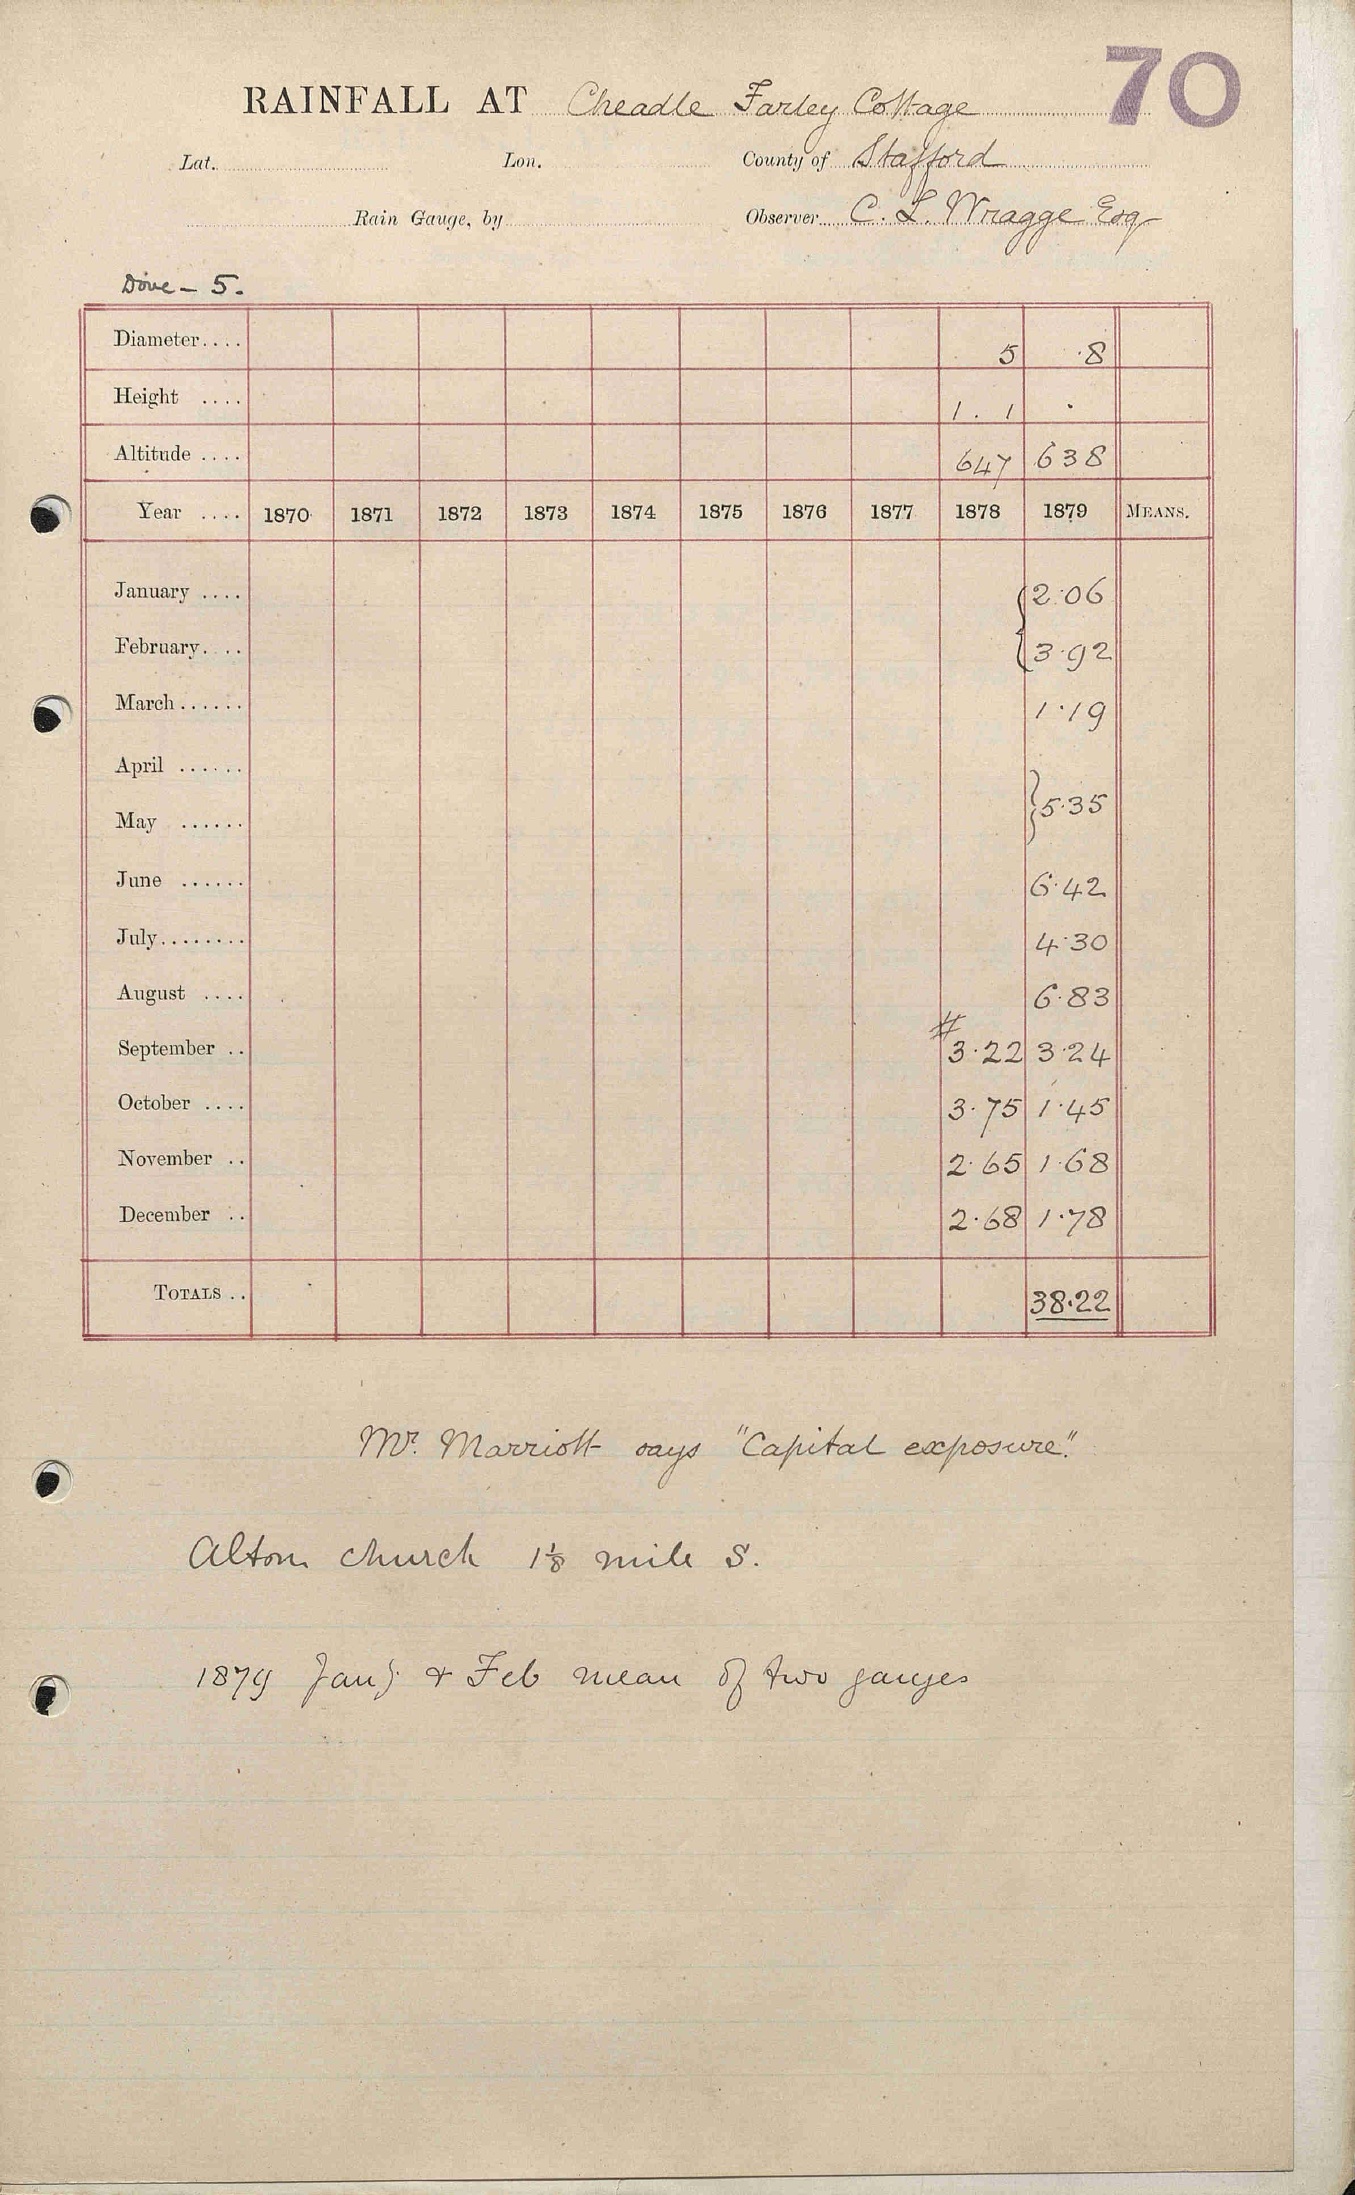 70
RAINFALL AT Cheadle Farley Cottage
Lat. Lon. County of Stafford
Rain Gauge, by Observer C. L. Wragge Esq
Dove – 5.
Diameter.... 5 ·8
Height .... 1 . 1 ·
Altitude .... 647 638
Year .... 1870 1871 1872 1873 1874 1875 1876 1877 1878 1879 MEANS.
January .... { 2·06
February.... 3·92
March...... 1·19
April ......
} 5·35
May ......
June ...... 6·42
July........ 4·30
August .... 6·83
#
September .. 3·22 3·24
October .... 3·75 1·45
November .. 2·65 1·68
December .. 2·68 1·78
TOTALS .. 38·22
Mr. Marriott says "Capital exposure".
Alton church 1⅛ mile S.
1879 Jany & Feb mean of two gauges